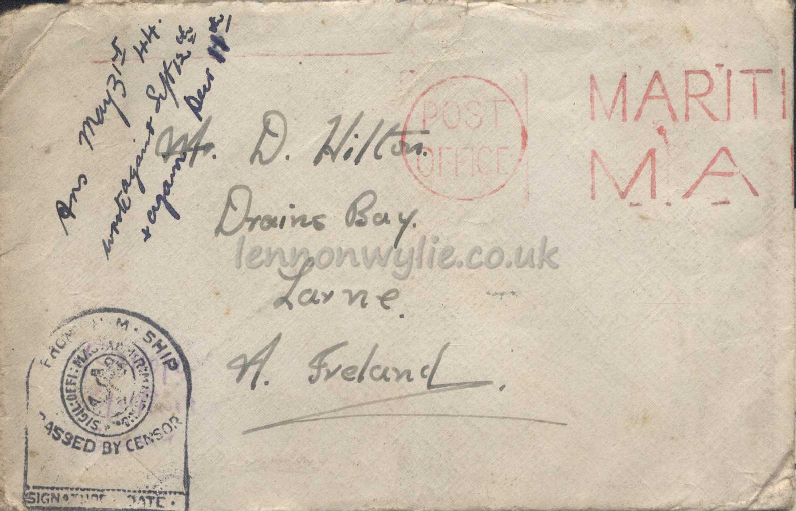 Ans May 31st 44.
wrote again Sept 12th
+ again Dec 11th
POST
OFFICE
MARITI
MA
Mr. D. Hilton.
Drains Bay.
lennonwylie.co.uk
Larne.
N. Ireland.
FROM H.M. SHIP
PASSED BY CENSOR
SIGNATURE DATE